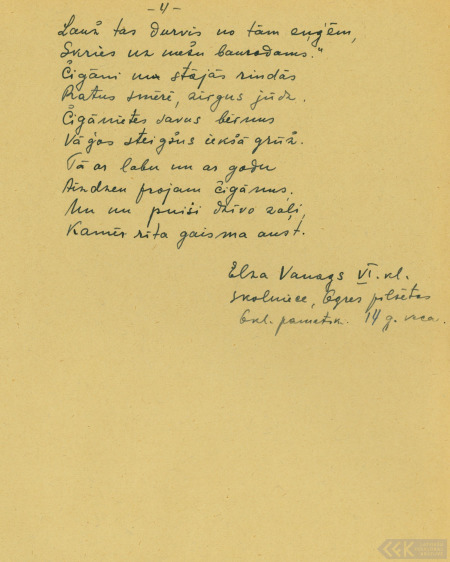 - 4 -
Lauž tas durvis no tām eņģēm,
Skries uz mežu baurodams."
Čigāni nu stājās rindās
Ratus smērē, zirgus jūdz.
Čigānietes savus bērnus
Vāģos steigšus iekšā grūž.
Tā ar labu un ar godu
Aizdzen projam čigānus,
Nu un puiši dzīvo zaļi,
Kamēr rīta gaisma aust.
Elza Vanags VI. kl.
skolniece, Ogres pilsētas
6 kl. pamatsk. 14 g. veca.